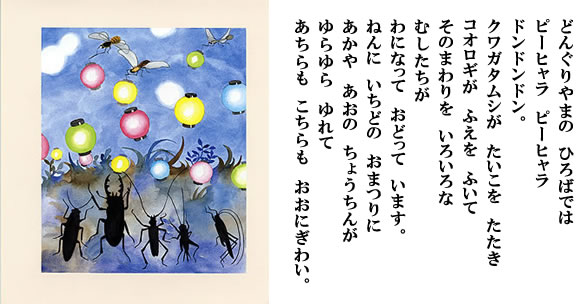 どんぐりやまの　ひろばでは
ピーヒャラ　ピーヒャラ
ドンドンドン。
クワガタムシが　たいこを　たたき
コオロギが　ふえを　ふいて
そのまわりを　いろいろな
むしたちが
わになって　おどって　います。
ねんに　いちどの　おまつりに
あかや　あおの　ちょうちんが
ゆらゆら　ゆれて
あちらも　こちらも　おおにぎわい。